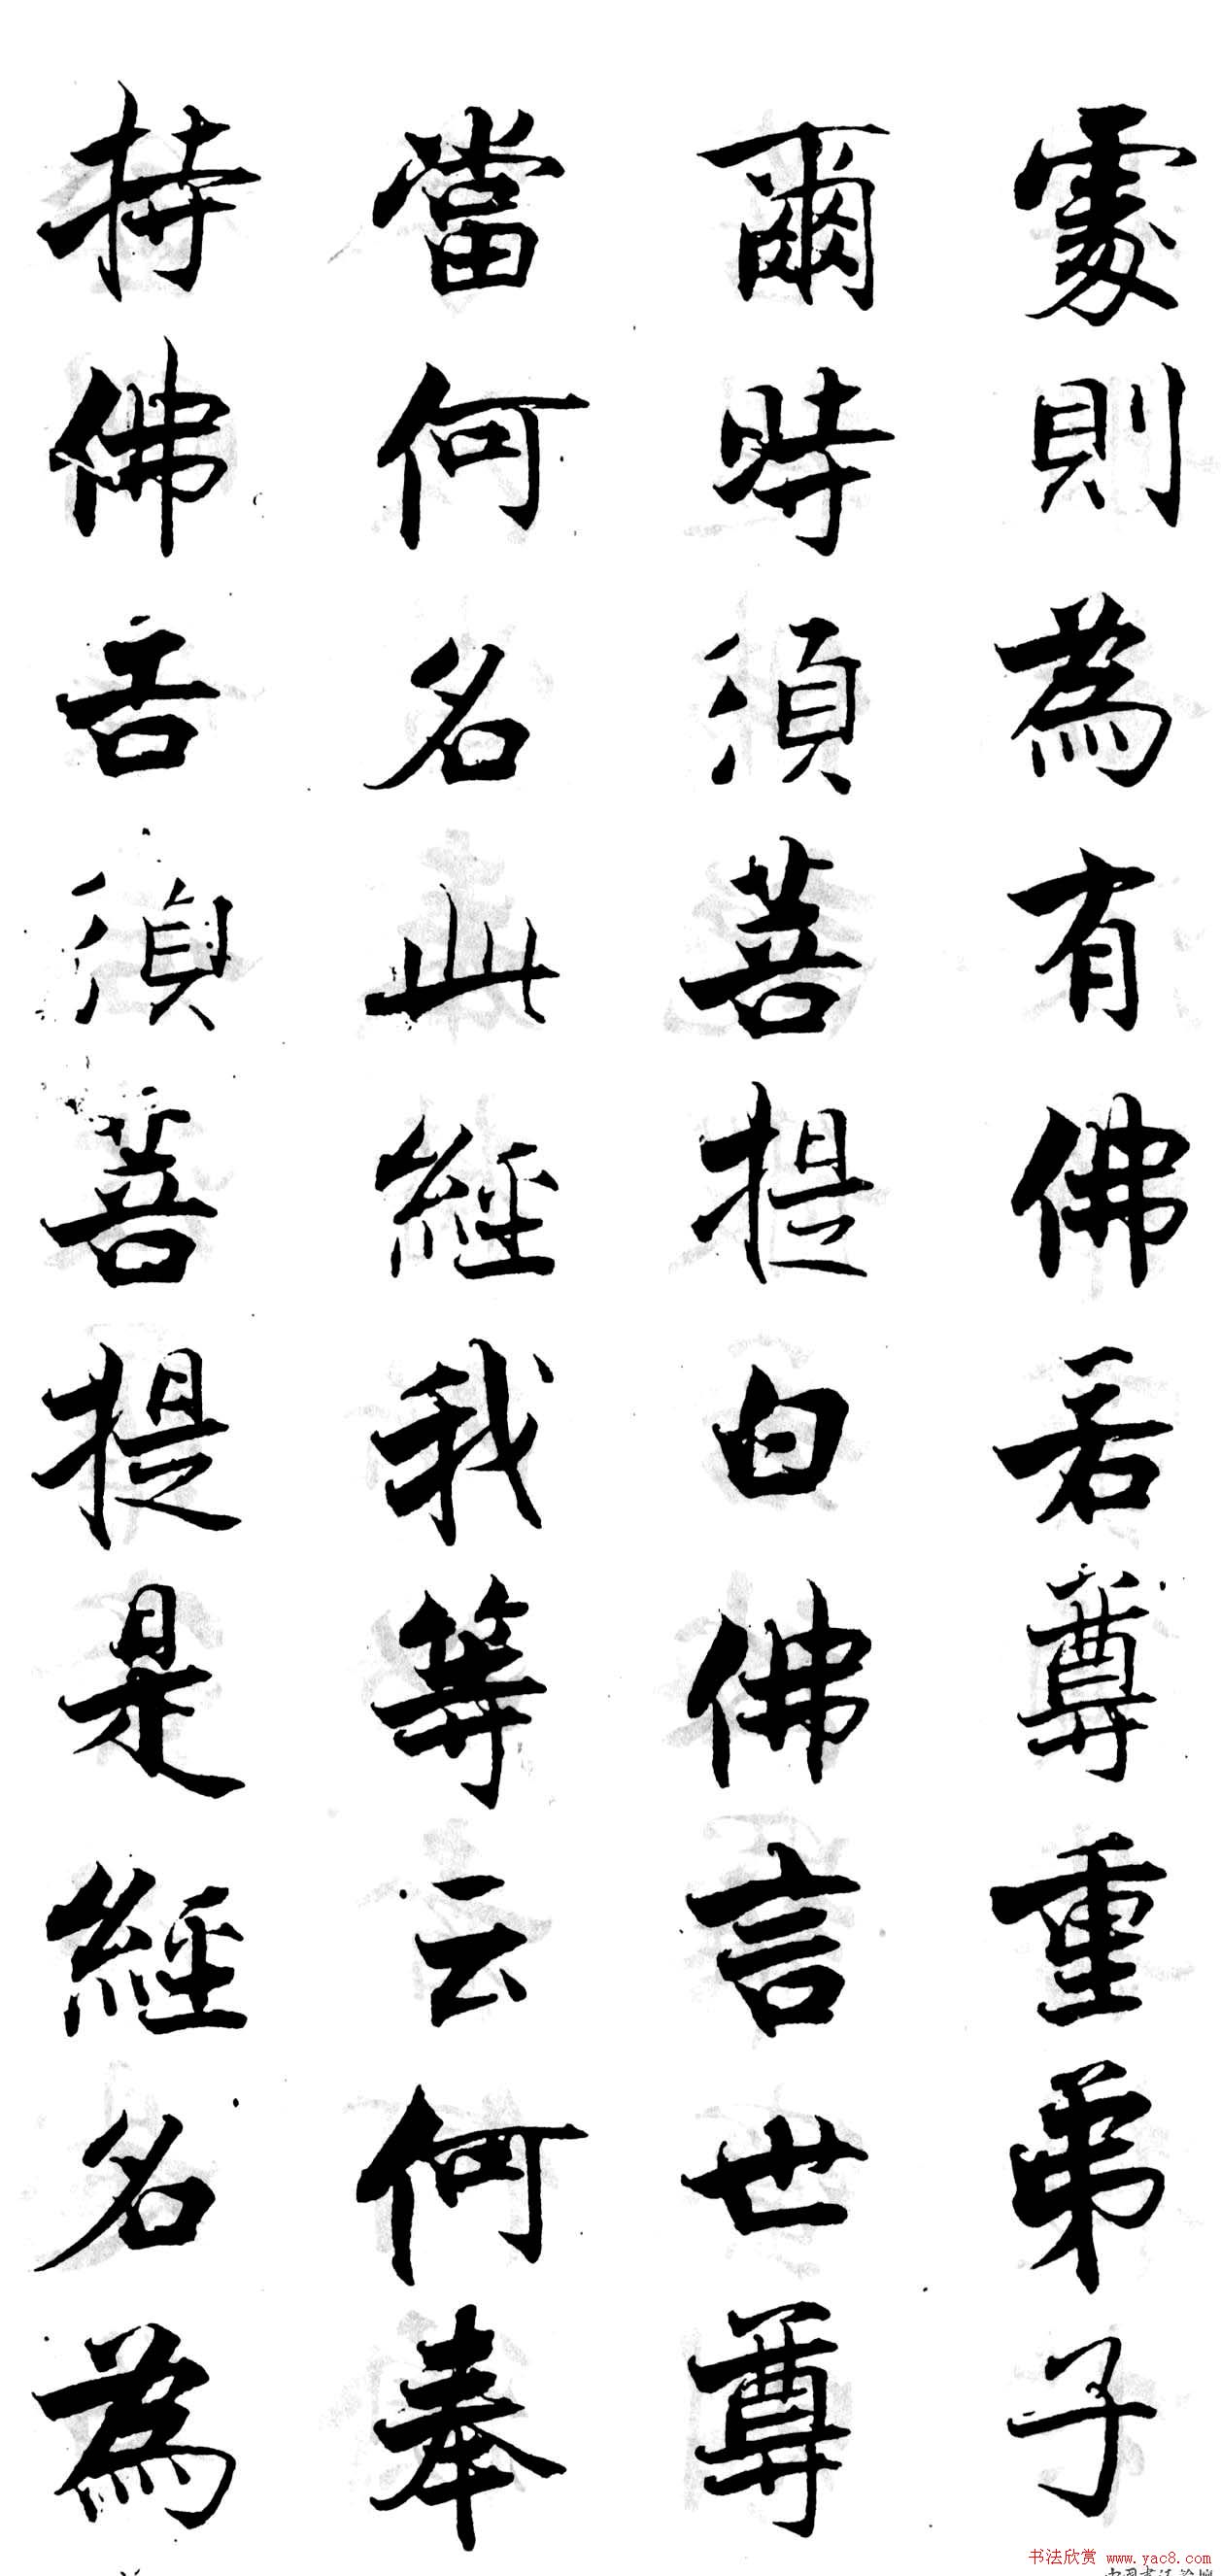 處則為有佛若尊重弟子
爾時須菩提白佛言世尊
當何名此經我等云何奉
持佛告須菩提是經名為
书法欣赏 www.yac8.com